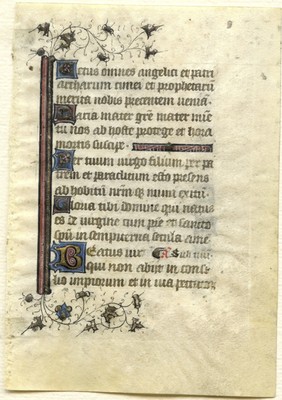 Cetus omnes angelici et patri
archarum cunei et prophetarum
merita nobis precentem veniā.
Maria mater grē mater mie
tu nos ab hoste protege et hora
mortis suscipe
Per tuum virgo filium per pa
trem et paraclitum esto presens
ad
Gloria tibi domine qui natus
es de virgine cum prē et sancto
spū in sempiterna secula amē
Beatus vir
qui non abiit in consi
lio impiorum et in via peccatorū